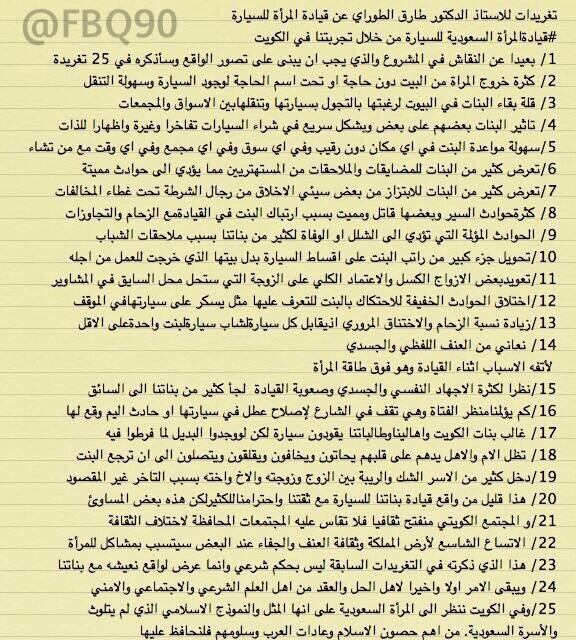 @FBQ90
تغريدات للاستاذ الدكتور طارق الطوراي عن قيادة المرأة للسيارة
#قيادةالمرأة السعودية للسيارة من خلال تجربتنا في الكويت
1/ بعيدا عن النقاش في المشروع والذي يجب ان يبنى على تصور الواقع وسأذكره في 25 تغريدة
2/ كثرة خروج المراة من البيت دون حاجة او تحت اسم الحاجة لوجود السيارة وسهولة التنقل
3/ قلة بقاء البنات في البيوت لرغبتها بالتجول بسيارتها وتنقلهابين الاسواق والمجمعات
4/ تاثير البنات بعضهم على بعض وبشكل سريع في شراء السيارات تفاخرا وغيرة واظهارا للذات
5/سهولة مواعدة البنت في اي مكان دون رقيب وفي اي سوق وفي اي مجمع وفي اي وقت مع من تشاء
6/تعرض كثير من البنات للمضايقات والملاحقات من المستهتريين مما يؤدي الى حوادث مميتة
7/ تعرض كثير من البنات للابتزاز من بعض سيئي الاخلاق من رجال الشرطة تحت غطاء المخالفات
8/ كثرةحوادث السير وبعضها قاتل ومميت بسبب ارتباك البنت في القيادةمع الزحام والتجاوزات
9/ الحوادث المؤلمة التي تؤدي الى الشلل او الوفاة لكثير من بناتنا بسبب ملاحقات الشباب
10/تحويل جزء كبير من راتب البنت على اقساط السيارة بدل بيتها الذي خرجت للعمل من اجله
11/تعويدبعض الازواج الكسل والاعتماد الكلي على الزوجة التي ستحل محل السايق في المشاوير
12/ اختلاق الحوادث الخفيفة للاحتكاك بالبنت للتعرف عليها مثل يسكر على سيارتهافي الموقف
13/زيادة نسبة الزحام والاختناق المروري اذيقابل كل سيارةلشاب سيارةلبنت واحدةعلى الاقل
14/ نعاني من العنف اللفظي والجسدي
لأتفه الاسباب اثناء القيادة وهو فوق طاقة المرأة
15/نظرا لكثرة الاجهاد النفسي والجسدي وصعوبة القيادة لجأ كثير من بناتنا الى السائق
16/كم يؤلمنامنظر الفتاة وهي تقف في الشارع لإصلاح عطل في سيارتها او حادث اليم وقع لها
17/ غالب بنات الكويت واهاليناوطالباتنا يقودون سيارة لكن لووجدوا البديل لما فرطوا فيه
18/ تظل الام والاهل يدهم على قلبهم يحاتون ويخافون ويقلقون ويتصلون الى ان ترجع البنت
19/دخل كثير من الاسر الشك والريبة بين الزوج وزوجته والاخ واخته بسبب التاخر غير المقصود
20/ هذا قليل من واقع قيادة بناتنا للسيارة مع ثقتنا واحترامناللكثيرلكن هذه بعض المساوئ
21/و المجتمع الكويتي منفتح ثقافيا فلا تقاس عليه المجتمعات المحافظة لاختلاف الثقافة
22/ الاتساع الشاسع لأرض المملكة وثقافة العنف والجفاء عند البعض سيتسبب بمشاكل للمرأة
23/ هذا الذي ذكرته في التغريدات السابقة ليس بحكم شرعي وانما عرض لواقع نعيشه مع بناتنا
24/ ويبقى الامر اولا واخيرا لاهل الحل والعقد من اهل العلم الشرعي والاجتماعي والامني
25/وفي الكويت ننظر الى المرأة السعودية على انها المثل والنموذج الاسلامي الذي لم يتلوث
والأسرة السعودية. من اهم حصون الاسلام وعادات العرب وسلومهم فلنحافظ عليها